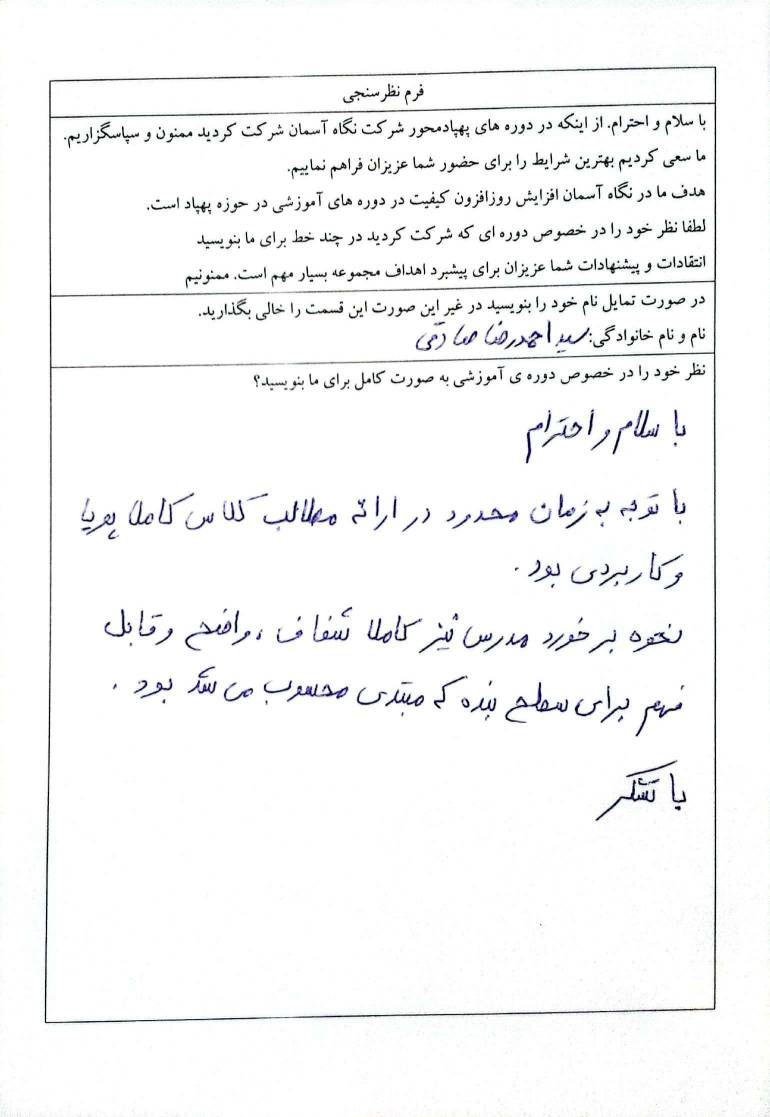 فرم نظرسنجی
با سلام و احترام. از اینکه در دوره های پهپادمحور شرکت نگاه آسمان شرکت کردید ممنون و سپاسگزاریم.
ما سعی کردیم بهترین شرایط را برای حضور شما عزیزان فراهم نماییم.
هدف ما در نگاه آسمان افزایش روزافزون کیفیت در دوره های آموزشی در حوزه پهپاد است.
لطفا نظر خود را در خصوص دوره ای که شرکت کردید در چند خط برای ما بنویسید
انتقادات و پیشنهادات شما عزیزان برای پیشبرد اهداف مجموعه بسیار مهم است. ممنونیم
در صورت تمایل نام خود را بنویسید در غیر این صورت این قسمت را خالی بگذارید.
نام و نام خانوادگی: سید احمدرضا صادقی
نظر خود را در خصوص دوره ی آموزشی به صورت کامل برای ما بنویسید؟
با سلام و احترام
با توجه به زمان محدود در ارائه مطالب کلاس کاملا پویا
و کاربردی بود.
نحوه برخورد مدرس نیز کاملا شفاف، واضح و قابل
فهم برای سطح بنده که مبتدی محسوب می شد بود.
با تشکر